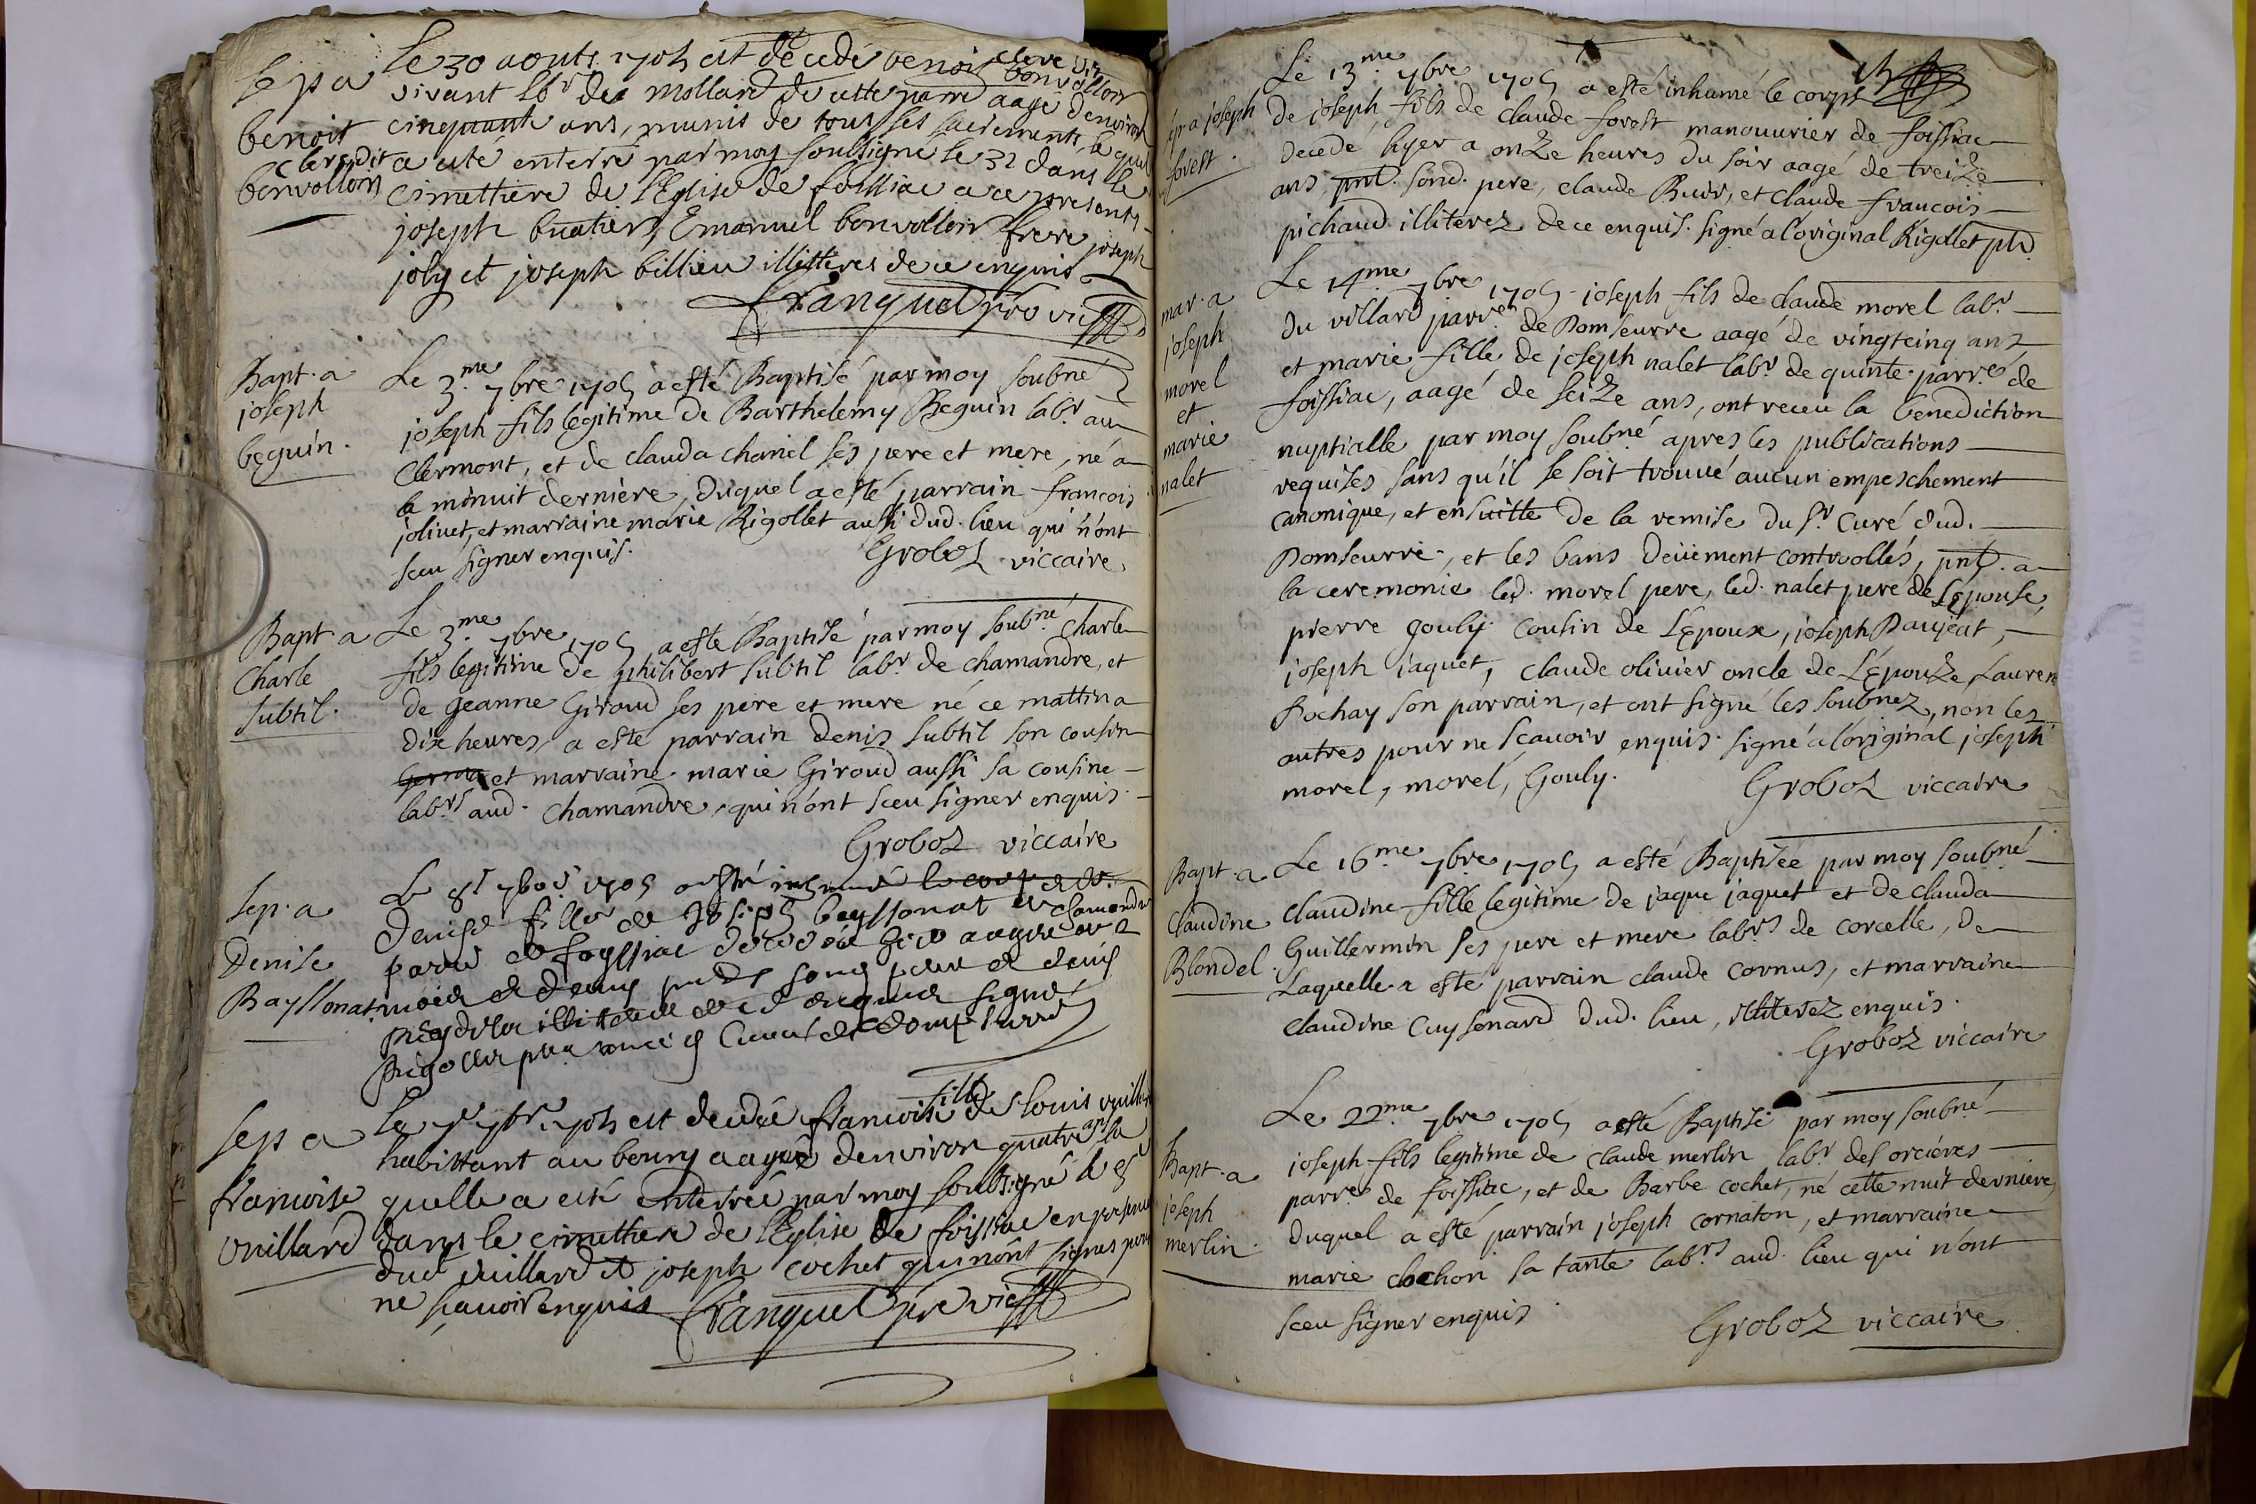 Sepa
benoit
Clere dit
bonvolloin
le 30 aouts 1705 est decedé benoi Clere dit
bonvolloin
vivant lbr des mollard de cette parre aagé denviron
cinquante ans, munis de tous ses sacrements, le quel
a esté enterré par moy soubsigné le 31 dans le
cimettiere de l'Eglise de foissiac a ce presents
joseph buatier, Emanuel bonvolloin frere joseph
joly et joseph billieu illitteres de ce enquis
franquet pre vic
Bapt. a
joseph
beguin.
Le 3.me 7bre 1705 a esté Baptisé par moy soubné
joseph fils legitime de Barthelemy Beguin labr. au
Clermont, et de clauda chanel ses pere et mere, né a
la minuit derniere, duquel a esté parrain francois
jolivet, et marraine marie Rigollet aussi dud. lieu qui n'ont
sceu signer enquis.
Groboz viccaire
Bapt. a
Charle
subtil.
Le 3.me 7bre 1705 a esté Baptisé par moy soubné charle
fils legitime de philibert subtil labr. de chamandre, et
de geanne Giroud ses pere et mere né ce mattin a
dix heures, a esté parrain denis subtil son cousin
et marraine marie Giroud aussi sa cousine
labrs. aud. chamandre, qui n'ont sceu signer enquis.
Groboz viccaire
Sep. a
Denise
Bayssonat.
Le 1705 a esté inhumé le corps de
denise fille de Joseph bayssonat de chamandre
parre de foyssiac decedée hier aagée de
mois et demy sond pere et denis
illitere de ce enquis signé
Rigollet
Sep a
francoise
vuillard
Le 7bre 1705 est decedée francoise fille de louis vuillard
habittant au bourg aagée denviron quatre ans la
quelle a esté enterrée par moy soubsigné le
dans le cimettiere de l'Eglise de foissiac en presence
dud vuillard et joseph cochet qui nont signés pour
ne sçavoir enquis franquet pre vic
sep. a joseph
forest.
Le 13.me 7bre 1705 a esté inhumé le corps
de joseph fils de claude forest manouvrier de foissiac
decedé hyer a onze heures du soir aagé de treize
ans, pnt. sond. pere, claude Buir, et claude francois
pichaud illiterez de ce enquis. signé a l'original Rigollet ptre.
mar. a
joseph
morel
et
marie
nalet
Le 14.me 7bre 1705. joseph fils de claude morel labr.
du villard parre. de Domseurre aagé de vingtcinq ans
et marie fille de joseph nalet labr. de quinte. parre. de
foissiac, aagé de seize ans, ont receu la benediction
nuptialle par moy soubné apres les publications
requises sans qu'il se soit trouvé aucun empeschement
canonique, et ensuitte de la remise du sr. Curé dud.
Domseurre, et les bans deüement controollés, pnt. a
la ceremonie led. morel pere, led. nalet pere de Lepouse,
pierre gouly cousin de L'Epoux, joseph Paujeat,
joseph jaquet, claude olivier oncle de L'Epouze, Lauren
Pochay son parrain, et ont signé les soubnez, non les
autres pour ne scavoir enquis. signé a l'original joseph
morel, morel, Gouly. Groboz viccaire
Bapt. a
Claudine
Blondel.
Le 16.me 7bre 1705 a esté Baptisée par moy soubné
claudine fille legitime de jaque jaquet et de clauda
Guillermin ses pere et mere labrs. de corcelle, de
Laquelle a esté parrain claude cornus, et marraine
claudine Cuysenard dud. lieu, illiterez enquis.
Groboz viccaire
Bapt. a
joseph
merlin.
Le 22.me 7bre 1705 a esté Baptisé par moy soubné
joseph fils legitime de claude merlin labr. des orcieres
parre. de foissiac, et de Barbe cochet, né cette nuit derniere,
duquel a esté parrain joseph cornaton, et marraine
marie clochon sa tante labrs. aud. lieu qui n'ont
sceu signer enquis.
Groboz viccaire